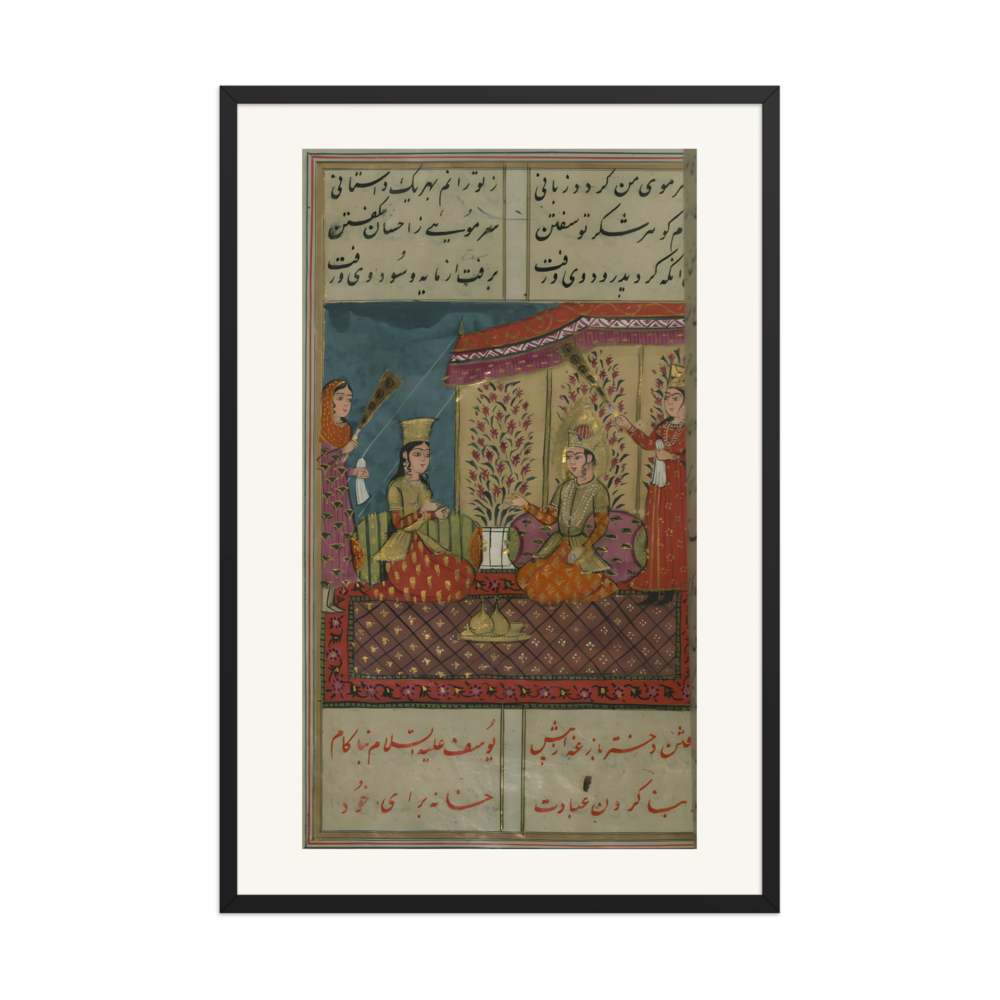 رموی من کردد زبانی ز تو رانم بهر یک داستانی
م کو هر شکر تو سفتن سر موئے ز احسان کفتن
انکه کرد پدرود وی و رفت برفت از مایه و سود وی و رفت
دختر بازغه یوسف علیه السلام
بنا کردن عبادت خانه برای خود